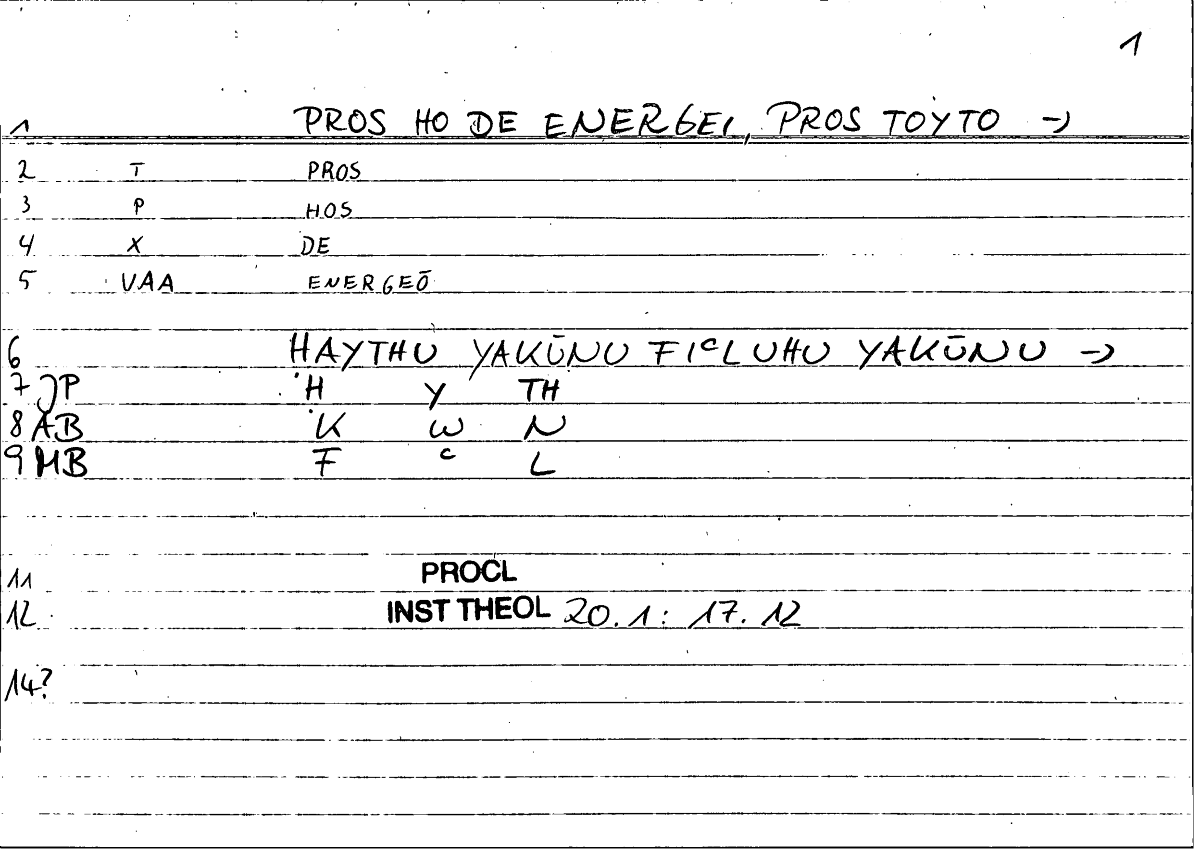 1
1 PROS HO DE ENERGEI, PROS TOYTO →
2 T PROS
3 P HOS
4 X DE
5 VAA ENERGEŌ
6 HAYTHU YAKŪNU FIᶜLUHU YAKŪNU →
7 JP H Y TH
8 AB K W N
9 MB F ᶜ L
11 PROCL
12 INST THEOL 20.1: 17.12
14?